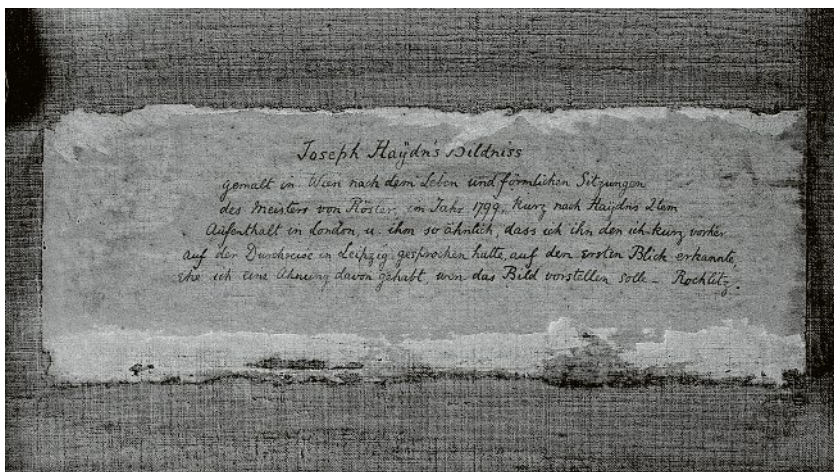 Joseph Haÿdn's Bildniss
gemalt in Wien nach dem Leben und förmlichen Sitzungen
des Meisters von Röster, im Jahr 1799, kurz nach Haÿdn's 2tem
Aufenthalt in London, u. ihm so ähnlich, dass ich ihn den ich kurz vorher
auf der Durchreise in Leipzig gesprochen hatte, auf den ersten Blick erkannte,
ehe ich eine Ahnung davon gehabt, wen das Bild vorstellen solle – Rochlitz.